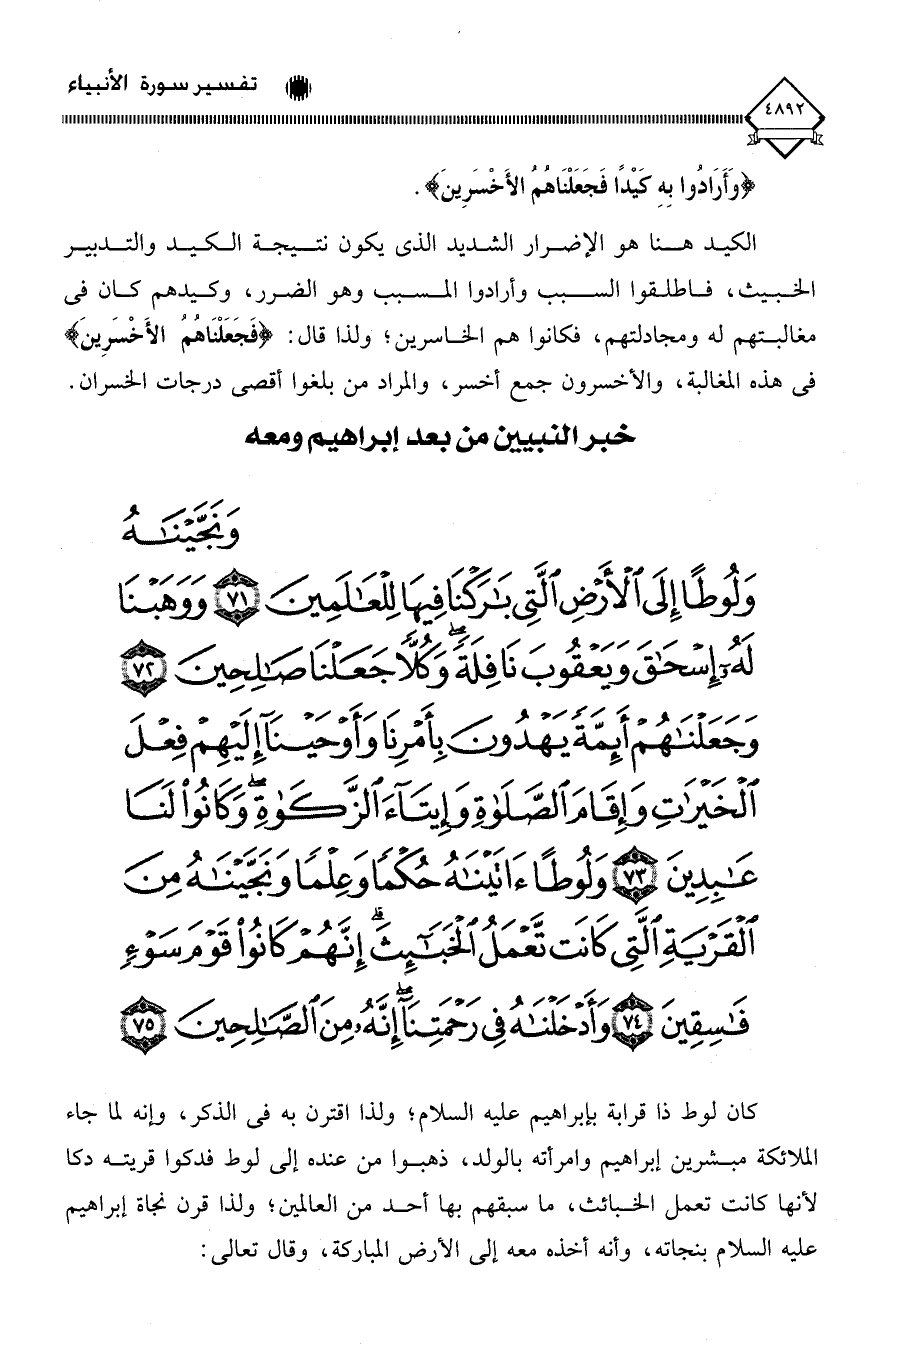 تفسير سورة الأنبياء
٤٨٩٢
﴿وَأَرَادُوا بِهِ كَيْدًا فَجَعَلْنَاهُمُ الأَخْسَرِينَ﴾ .
الكيد هنا هو الإضرار الشديد الذى يكون نتيجة الكيد والتدبير
الخبيث، فاطلقوا السبب وأرادوا المسبب وهو الضرر، وكيدهم كان فى
مغالبتهم له ومجادلتهم، فكانوا هم الخاسرين؛ ولذا قال: ﴿فَجَعَلْنَاهُمُ الأَخْسَرِينَ﴾
فى هذه المغالبة، والأخسرون جمع أخسر، والمراد من بلغوا أقصى درجات الخسران.
خبر النبيين من بعد إبراهيم ومعه
وَنَجَّيْنَٰهُ
وَلُوطًا إِلَى ٱلْأَرْضِ ٱلَّتِى بَٰرَكْنَا فِيهَا لِلْعَٰلَمِينَ ٧١ وَوَهَبْنَا
لَهُۥٓ إِسْحَٰقَ وَيَعْقُوبَ نَافِلَةً ۖ وَكُلًّا جَعَلْنَا صَٰلِحِينَ ٧٢
وَجَعَلْنَٰهُمْ أَئِمَّةً يَهْدُونَ بِأَمْرِنَا وَأَوْحَيْنَآ إِلَيْهِمْ فِعْلَ
ٱلْخَيْرَٰتِ وَإِقَامَ ٱلصَّلَوٰةِ وَإِيتَآءَ ٱلزَّكَوٰةِ ۖ وَكَانُوا۟ لَنَا
عَٰبِدِينَ ٧٣ وَلُوطًا ءَاتَيْنَٰهُ حُكْمًا وَعِلْمًا وَنَجَّيْنَٰهُ مِنَ
ٱلْقَرْيَةِ ٱلَّتِى كَانَت تَّعْمَلُ ٱلْخَبَٰٓئِثَ ۗ إِنَّهُمْ كَانُوا۟ قَوْمَ سَوْءٍ
فَٰسِقِينَ ٧٤ وَأَدْخَلْنَٰهُ فِى رَحْمَتِنَآ ۖ إِنَّهُۥ مِنَ ٱلصَّٰلِحِينَ ٧٥
كان لوط ذا قرابة بإبراهيم عليه السلام؛ ولذا اقترن به فى الذكر، وإنه لما جاء
الملائكة مبشرين إبراهيم وامرأته بالولد، ذهبوا من عنده إلى لوط فدكوا قريته دكا
لأنها كانت تعمل الخبائث، ما سبقهم بها أحد من العالمين؛ ولذا قرن نجاة إبراهيم
عليه السلام بنجاته، وأنه أخذه معه إلى الأرض المباركة، وقال تعالى: